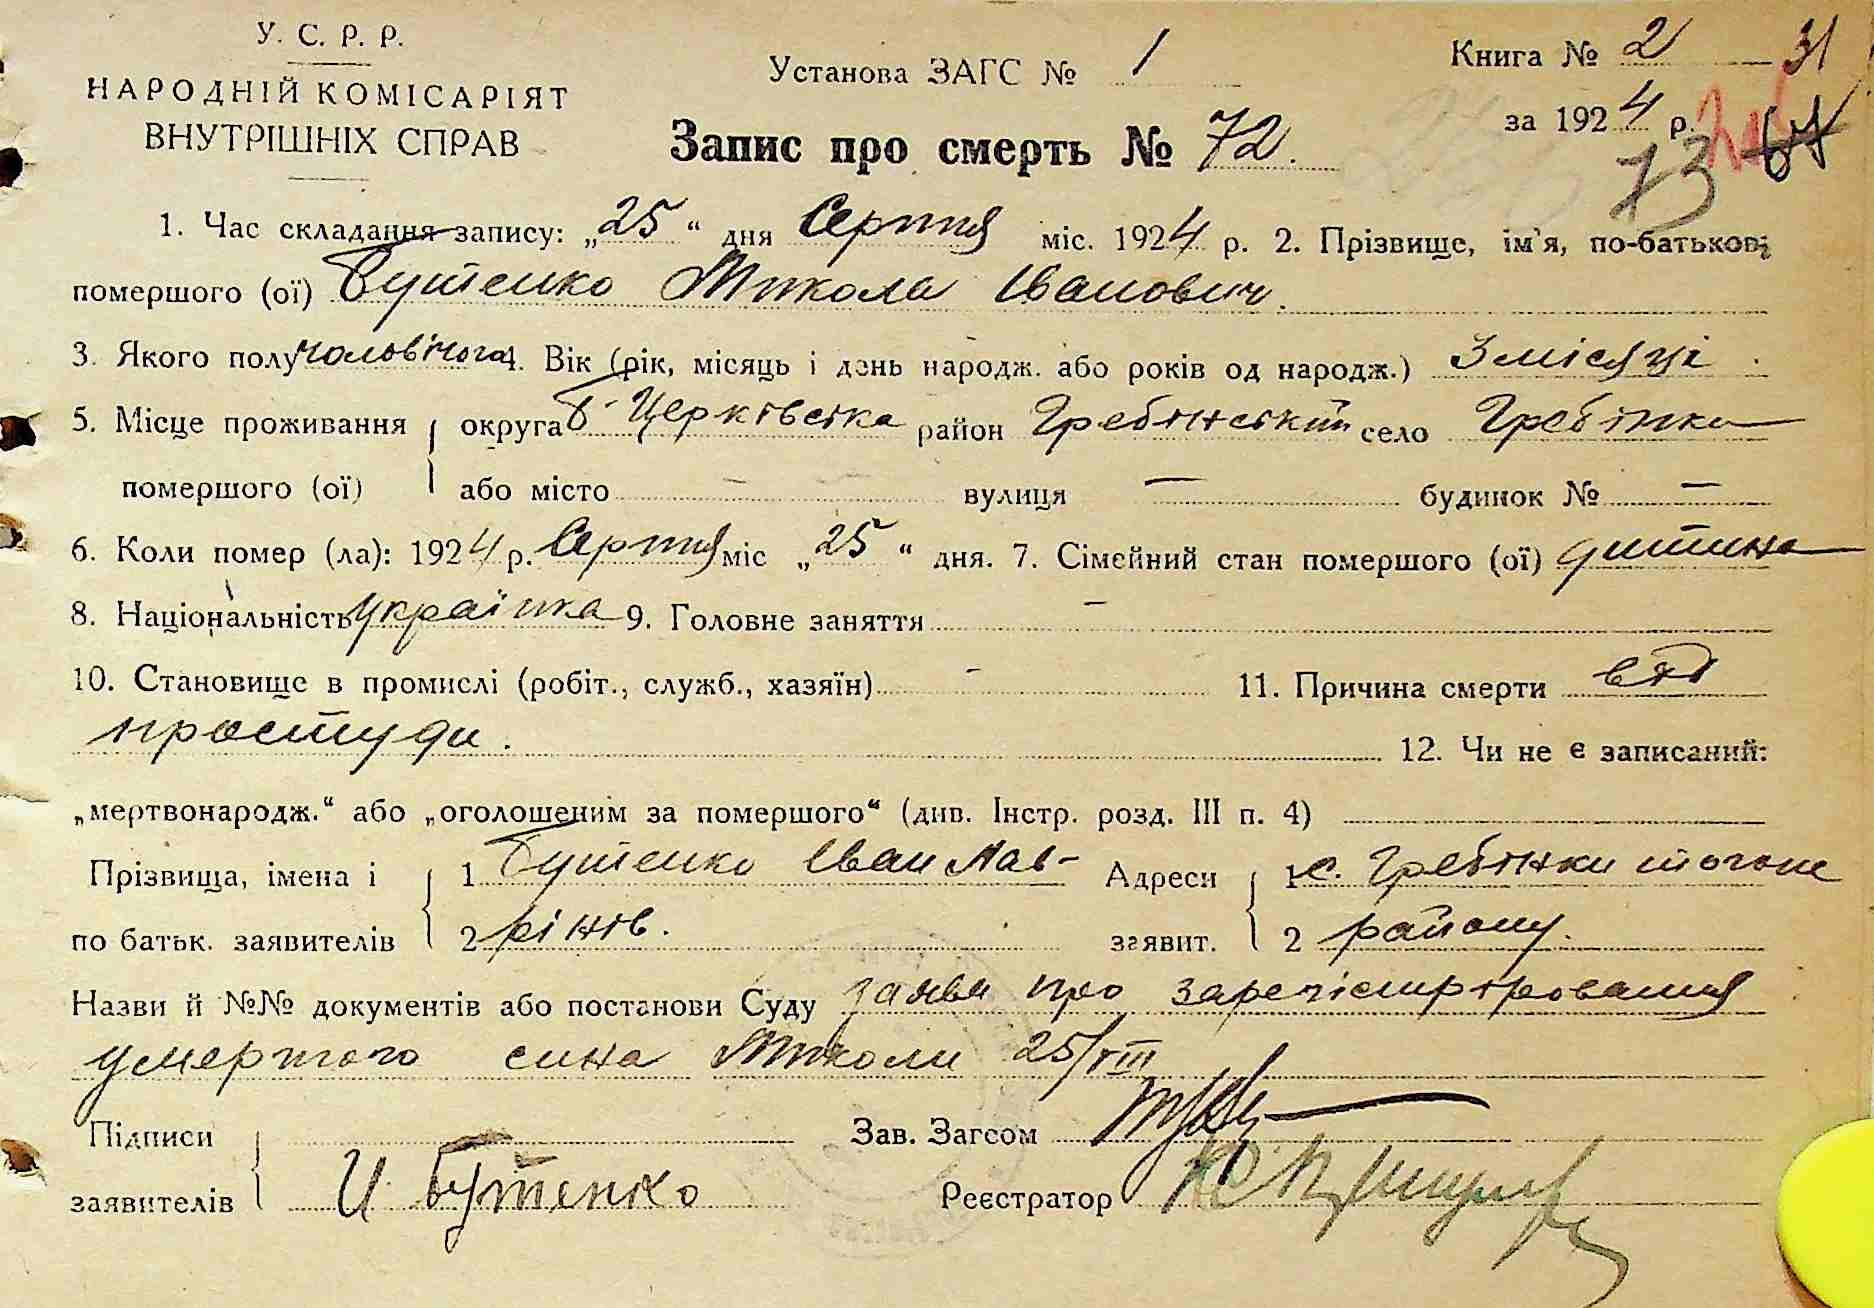 У. С. Р. Р.
НАРОДНІЙ КОМІСАРІЯТ
ВНУТРІШНІХ СПРАВ
Установа ЗАГС № 1
Книга № 2 31
за 1924 р.
73
Запис про смерть № 72.
1. Час складання запису: „25" дня Серпня міс. 1924 р. 2. Прізвище, ім'я, по-батькові
помершого (ої) Бутенко Микола Іванович.
3. Якого полу чоловічого 4. Вік (рік, місяць і день народж. або років од народж.) 3 місяці.
5. Місце проживання округа Б-Церківська район Гребінський село Гребінки
помершого (ої) або місто — вулиця — будинок № —
6. Коли помер (ла): 1924 р. Серпня міс „25" дня. 7. Сімейний стан помершого (ої) дитина
8. Національність українка 9. Головне заняття —
10. Становище в промислі (робіт., служб., хазяїн) - 11. Причина смерти від
простуди. 12. Чи не є записаний:
„мертвонародж." або „оголошеним за помершого" (див. Інстр. розд. III п. 4)
Прізвища, імена і 1 Бутенко Іван Лав- Адреси 1 с. Гребінки того же
по батьк. заявителів 2 рінів. заявит. 2 району.
Назви й №№ документів або постанови Суду заява про зарегістріровання
умершого сина Миколи 25/VIII
Підписи Зав. Загсом
заявителів И Бутенко Реєстратор